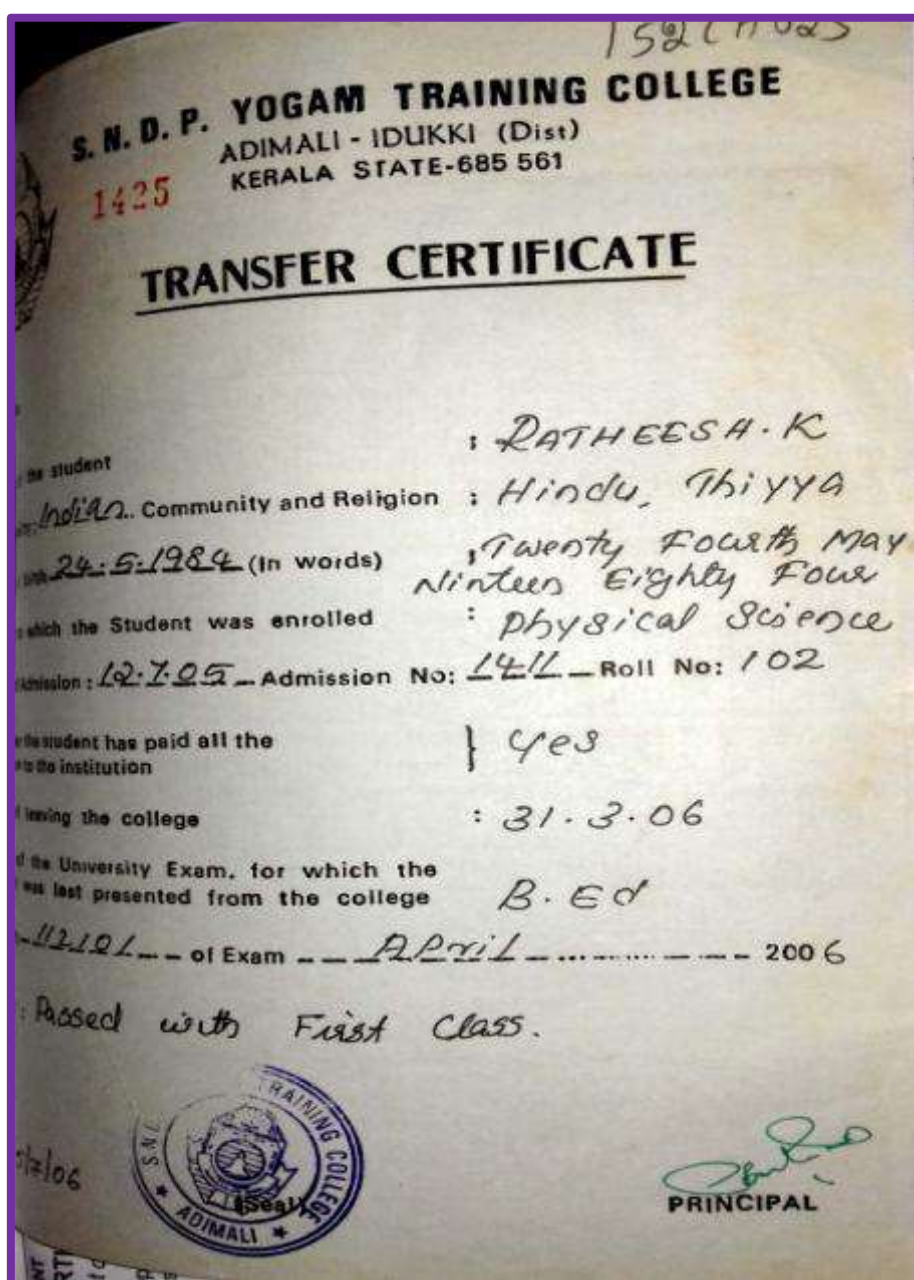 S. N. D. P. YOGAM TRAINING COLLEGE
ADIMALI - IDUKKI (Dist)
KERALA STATE-685 561
1425
TRANSFER CERTIFICATE
the student : RATHEESH. K
Indian.. Community and Religion : Hindu, Thiyya
24.5.1984 (In words) : Twenty Fourth May
Ninteen Eighty Four
which the Student was enrolled : Physical Science
Admission : 12.7.05 Admission No: 1411 Roll No: 102
the student has paid all the } Yes
to the institution
leaving the college : 31.3.06
the University Exam. for which the
was last presented from the college B. Ed
112101 of Exam April 2006
: Passed with First Class.
TRAINING COLLEGE
ADIMALI
(Seal)
/06
PRINCIPAL